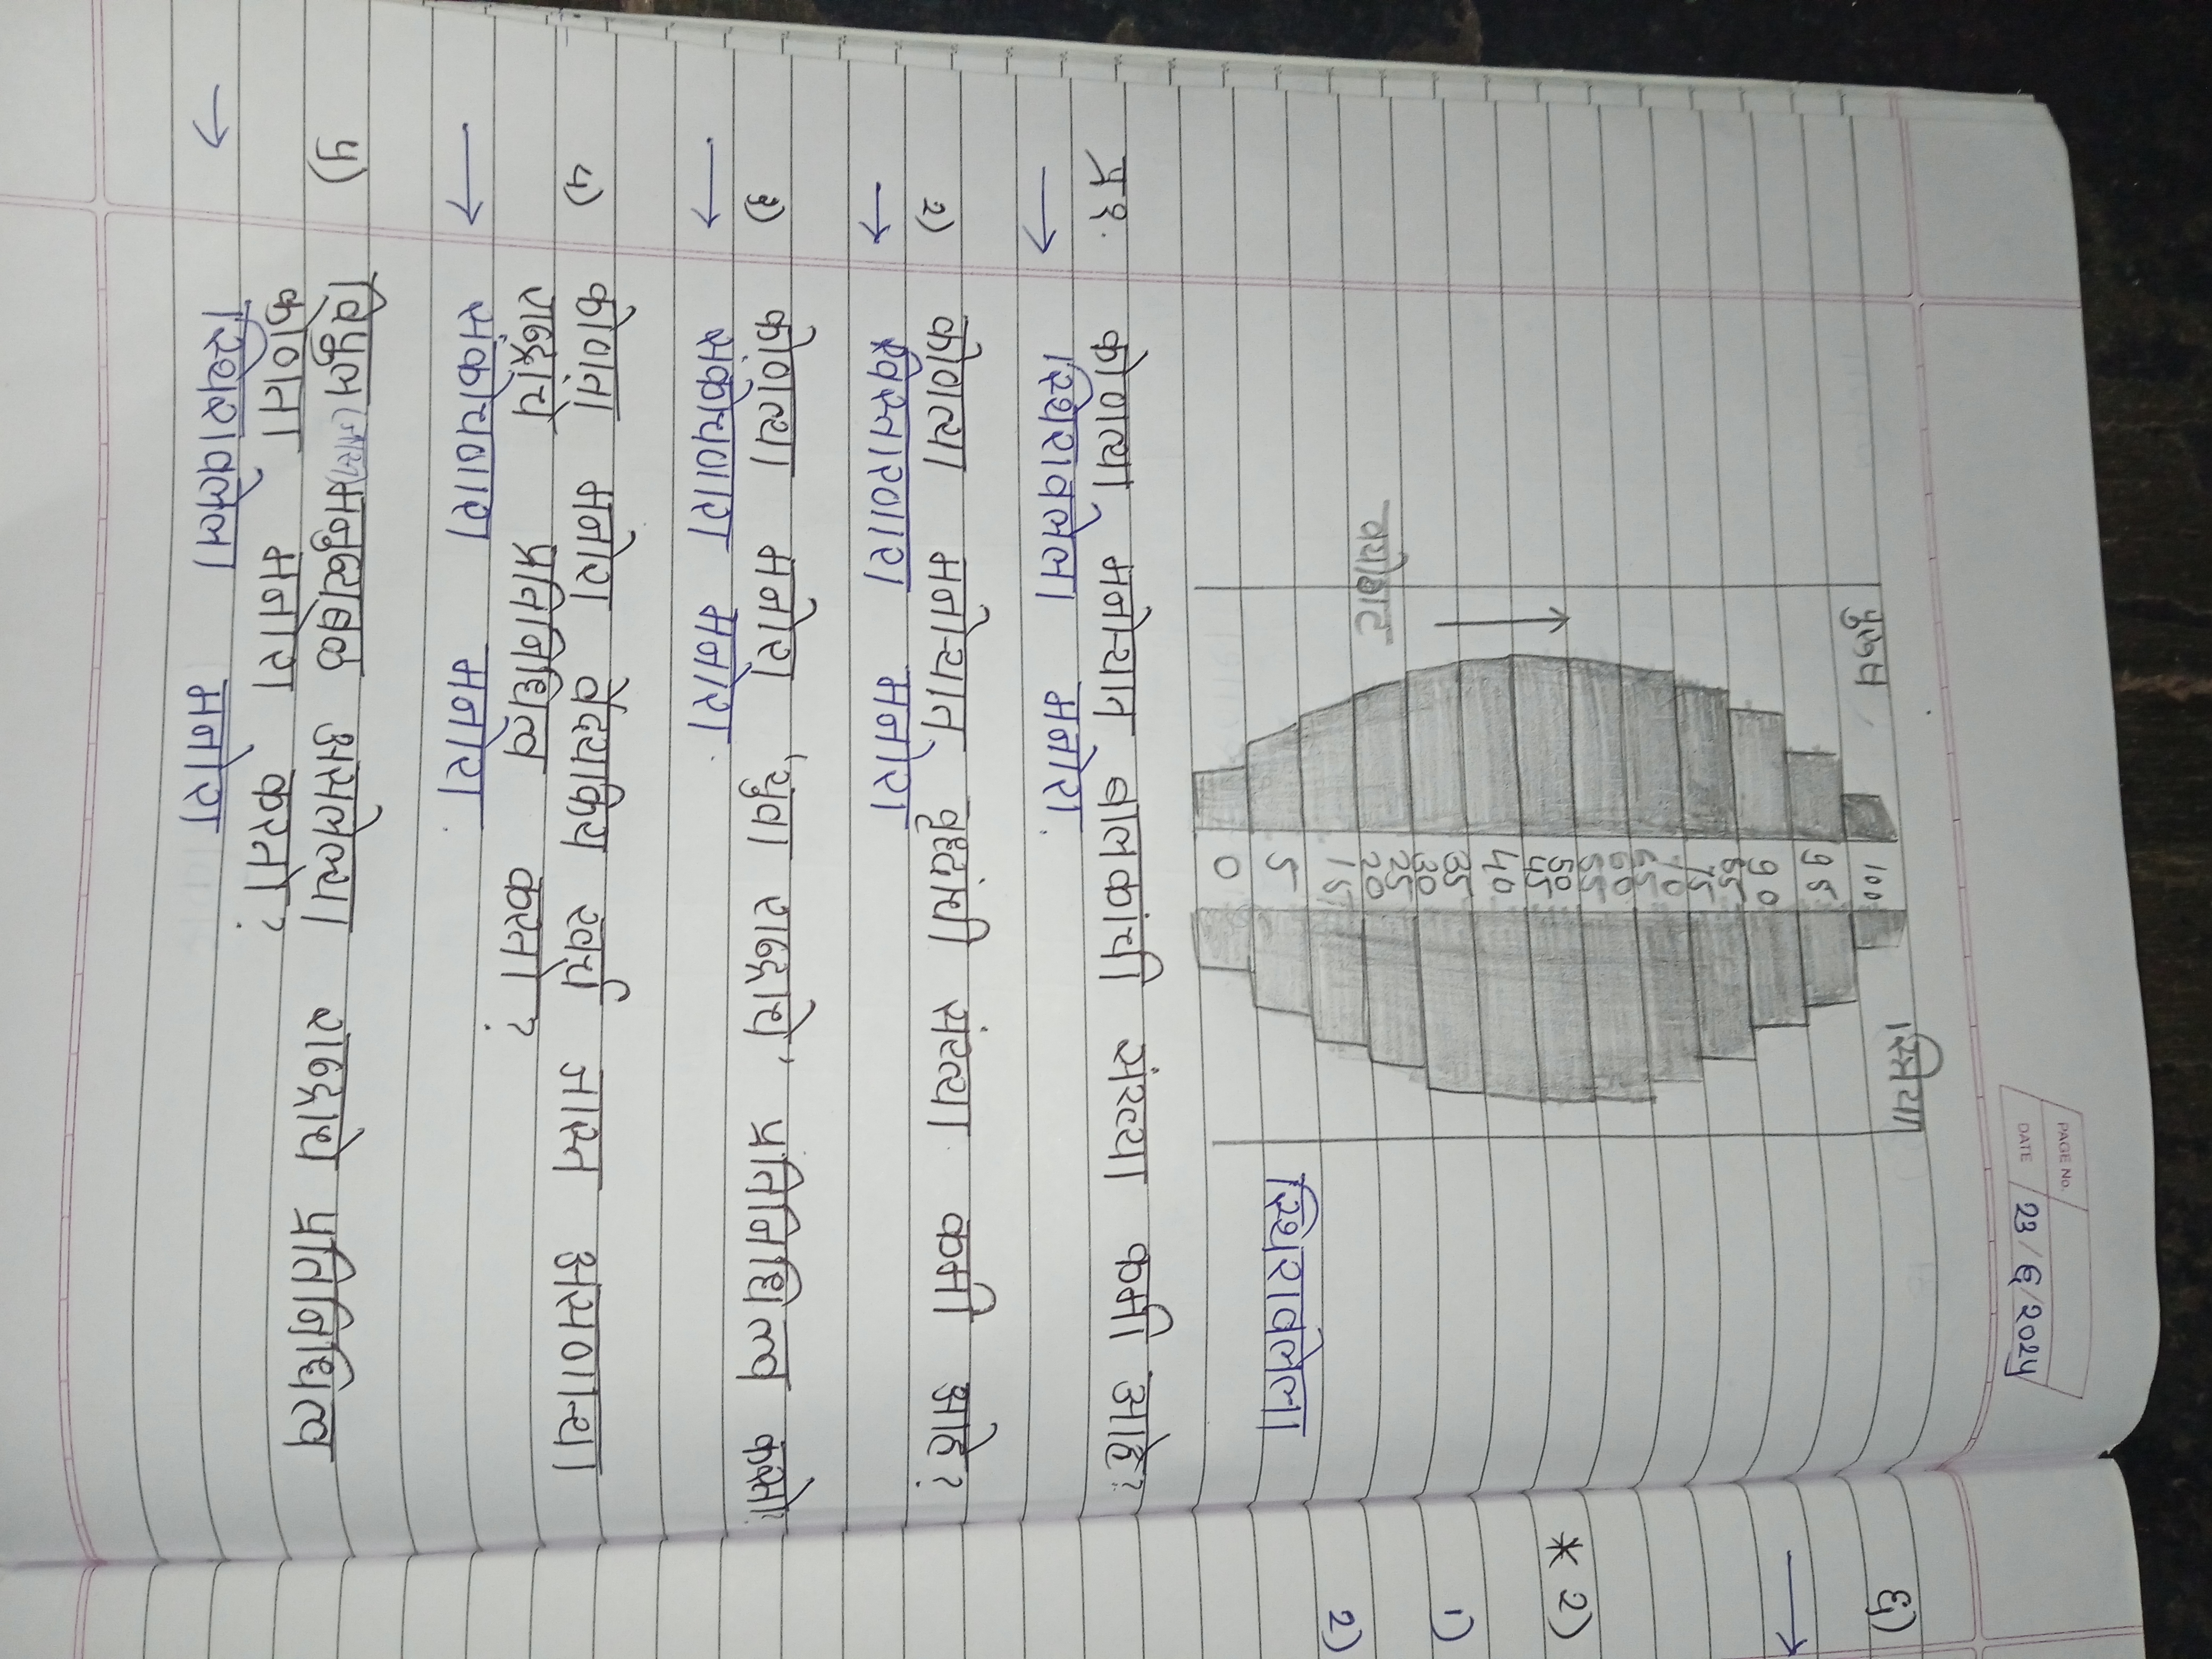 PAGE No.
DATE 23/6/2024
पुरुष
स्त्रिया
100
95
90
85
75
70
65
60
55
50
45
40
35
30
25
20
15
5
0
वयोगट
स्थिरावलेला
प्र१. कोणत्या मनोऱ्यात बालकांची संख्या कमी आहे?
→ स्थिरावलेला मनोरा.
२) कोणत्या मनोऱ्यात वृध्दंची संख्या कमी आहे?
→ विस्तारणारा मनोरा
३) कोणत्या मनोरा 'युवा राष्ट्राचे' प्रतिनिधित्व करतो
→ संकोचणारा मनोरा.
४) कोणता मनोरा वैद्यकिय खर्च जास्त असणाऱ्या
राष्ट्राचे प्रतिनिधित्व करता?
→ संकोचणारा मनोरा.
५) विपुल (जास्त) मनुष्यबळ असलेल्या राष्ट्राचे प्रतिनिधित्व
कोणता मनोरा करतो?
→ स्थिरावलेला मनोरा
६)
→
* 2)
1)
2)